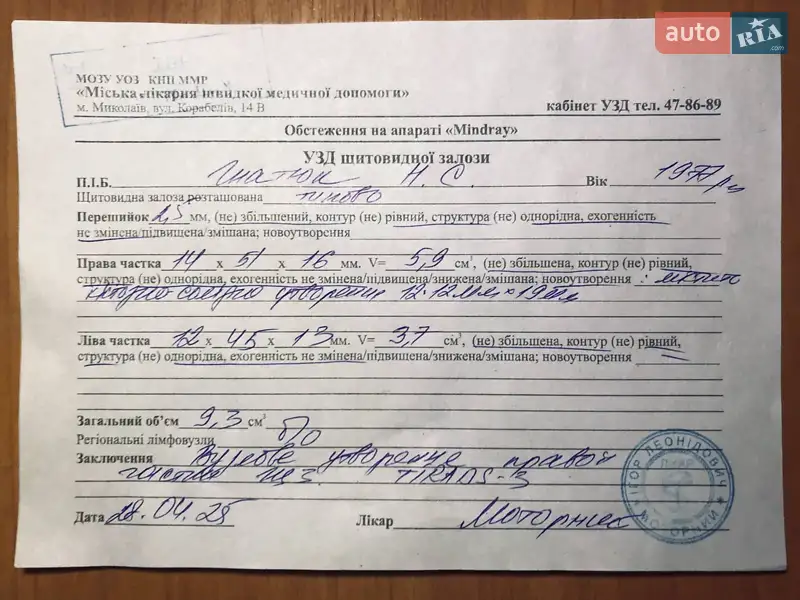 auto RIA .com
МОЗУ УОЗ КНП ММР
«Міська лікарня швидкої медичної допомоги»
м. Миколаїв, вул. Корабелів, 14 В
кабінет УЗД тел. 47-86-89
Обстеження на апараті «Mindray»
УЗД щитовидної залози
П.І.Б. Гнатюк Н. С. Вік 1977
Щитовидна залоза розташована типово
Перешийок 2,5 мм, (не) збільшений, контур (не) рівний, структура (не) однорідна, ехогенність
не змінена/підвищена/змішана; новоутворення
Права частка 14 х 51 х 16 мм. V= 5,9 см³, (не) збільшена, контур (не) рівний,
структура (не) однорідна, ехогенність не змінена/підвищена/знижена/змішана; новоутворення :
12х12мм х19мм
Ліва частка 12 х 45 х 13 мм. V= 3,7 см³, (не) збільшена, контур (не) рівний,
структура (не) однорідна, ехогенність не змінена/підвищена/знижена/змішана; новоутворення
Загальний об'єм 9,3 см³
Регіональні лімфовузли б/о
Заключення Вузлове утворення правої
частки щз. TIRADS-3
Дата 28.04.25 Лікар Моторний
ІГОР ЛЕОНІДОВИЧ
ЛІКАР
МОТОРНИЙ